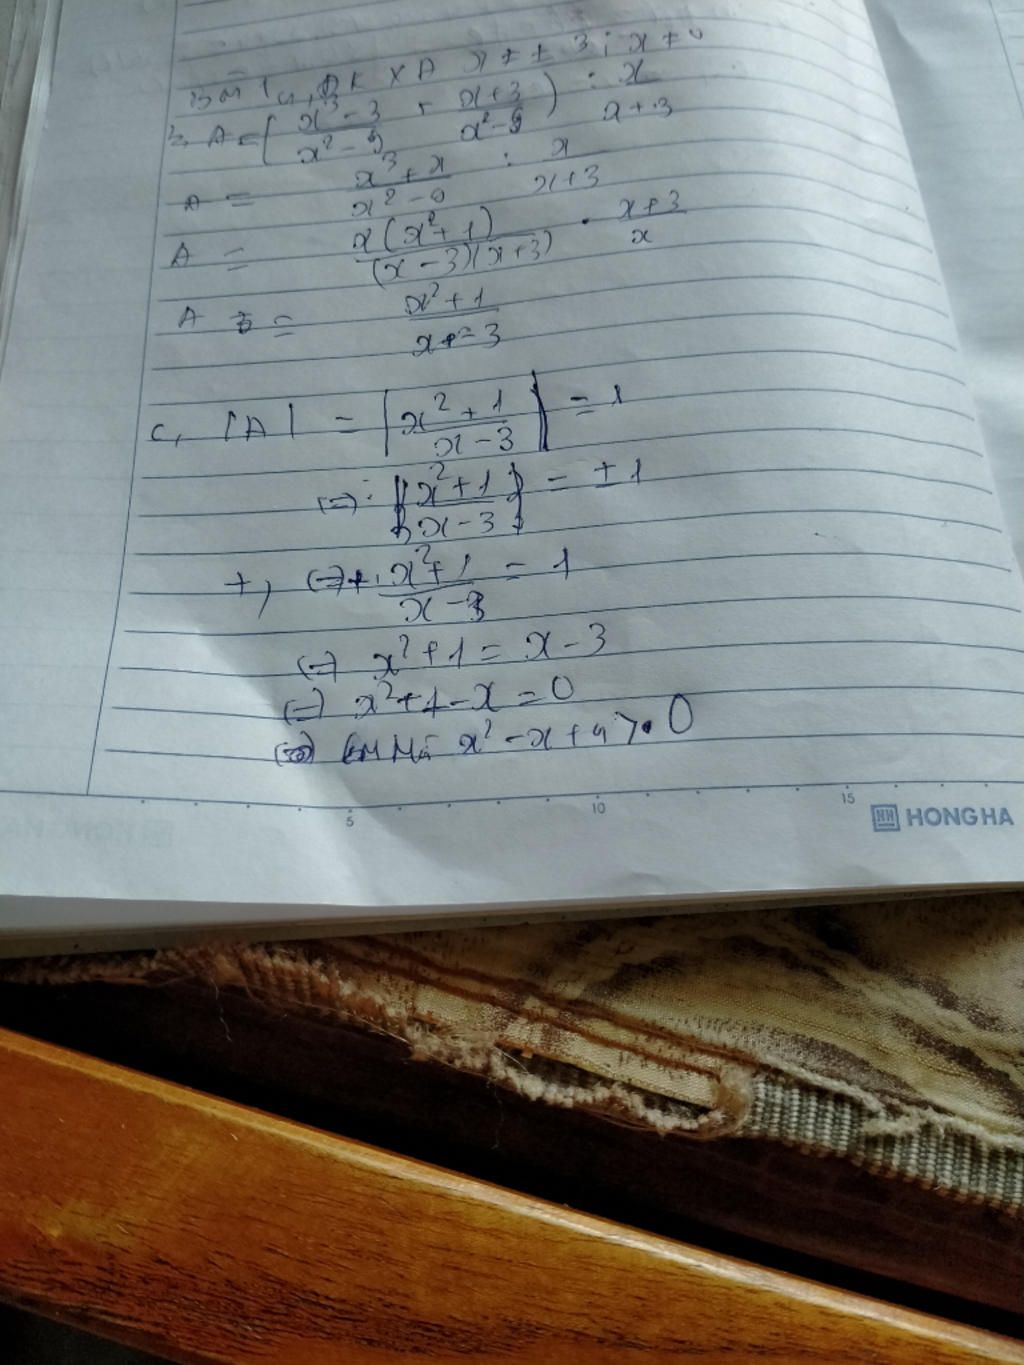 Bài 1 a, ĐKXĐ x ≠ ± 3 ; x ≠ 0
b, A = ( x³ - 3 / x² - 9 + x + 3 / x² - 9 ) : x / x + 3
A = x³ + x / x² - 9 : x / x + 3
A = x(x² + 1) / (x - 3)(x + 3) · x + 3 / x
A = x² + 1 / x - 3
c, |A| = | x² + 1 / x - 3 | = 1
(=) x² + 1 / x - 3 = ± 1
+, (=) x² + 1 / x - 3 = 1
(=) x² + 1 = x - 3
(=) x² + 4 - x = 0
x² - x + 4 > 0
5 10 15
HONG HA